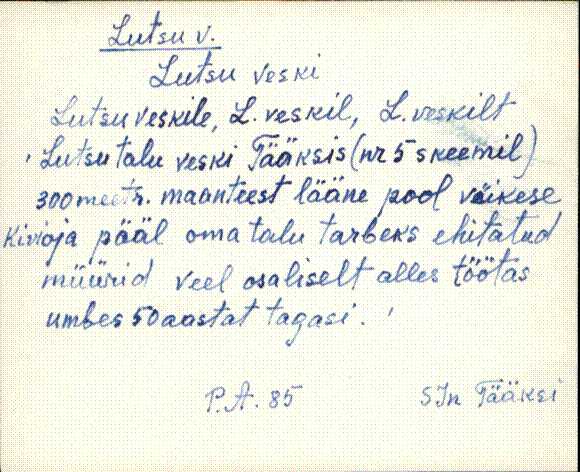 Lutsu v.
Lutsu veski
Lutsu veskile, L. veskil, L. veskilt
' Lutsu talu veski Tääksis (nr 5 skeemil)
300 meetr. maanteest lääne pool väikese
Kivioja pääl oma talu tarbeks ehitatud
müürid veel osaliselt alles töötas
umbes 50 aastat tagasi. '
P.A. 85 SJn Tääksi